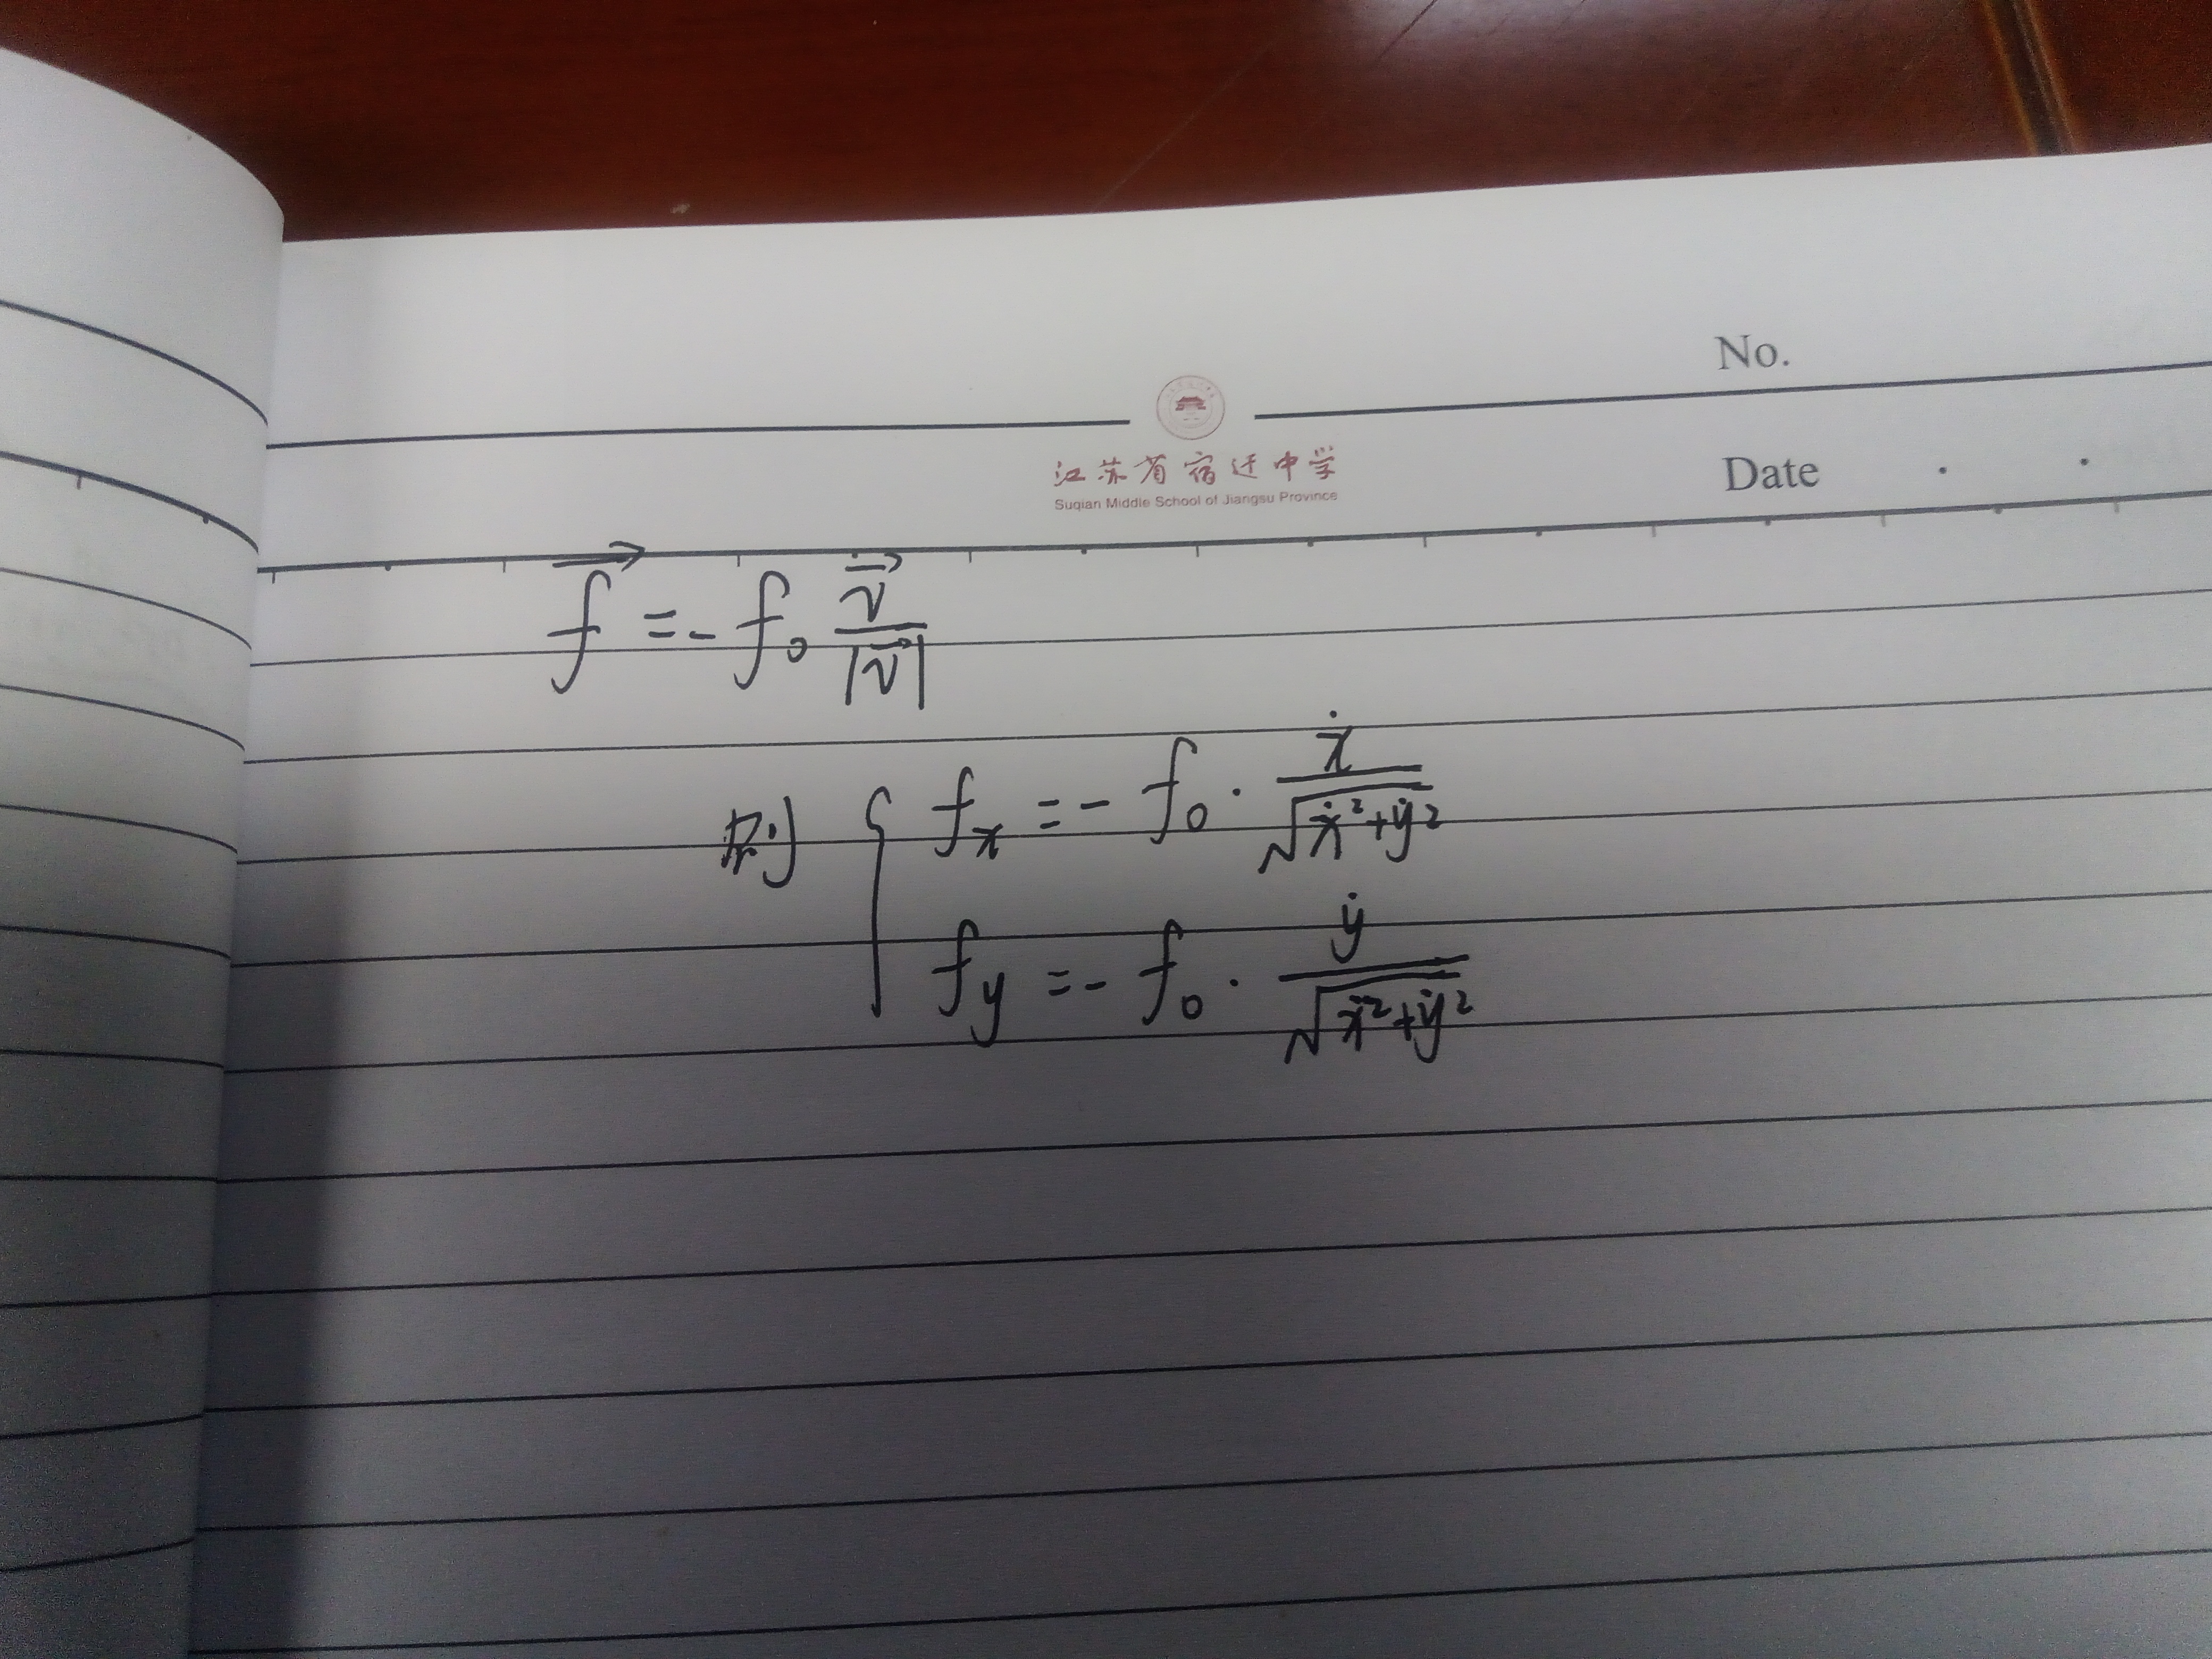 No.
江苏省宿迁中学
Suqian Middle School of Jiangsu Province
Date . .
$\vec{f} = -f_0 \frac{\vec{v}}{|\vec{v}|}$
则 $\begin{cases} f_x = -f_0 \cdot \frac{\dot{x}}{\sqrt{\dot{x}^2+\dot{y}^2}} \\ f_y = -f_0 \cdot \frac{\dot{y}}{\sqrt{\dot{x}^2+\dot{y}^2}} \end{cases}$